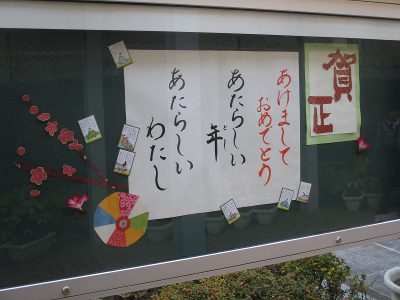 賀正
あけまして
おめでとう
あたらしい
年
とし
あたらしい
わたし